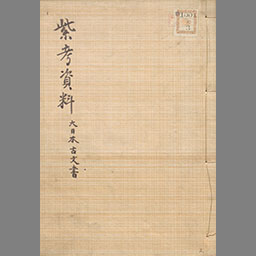 紫考資料
大日本古文書